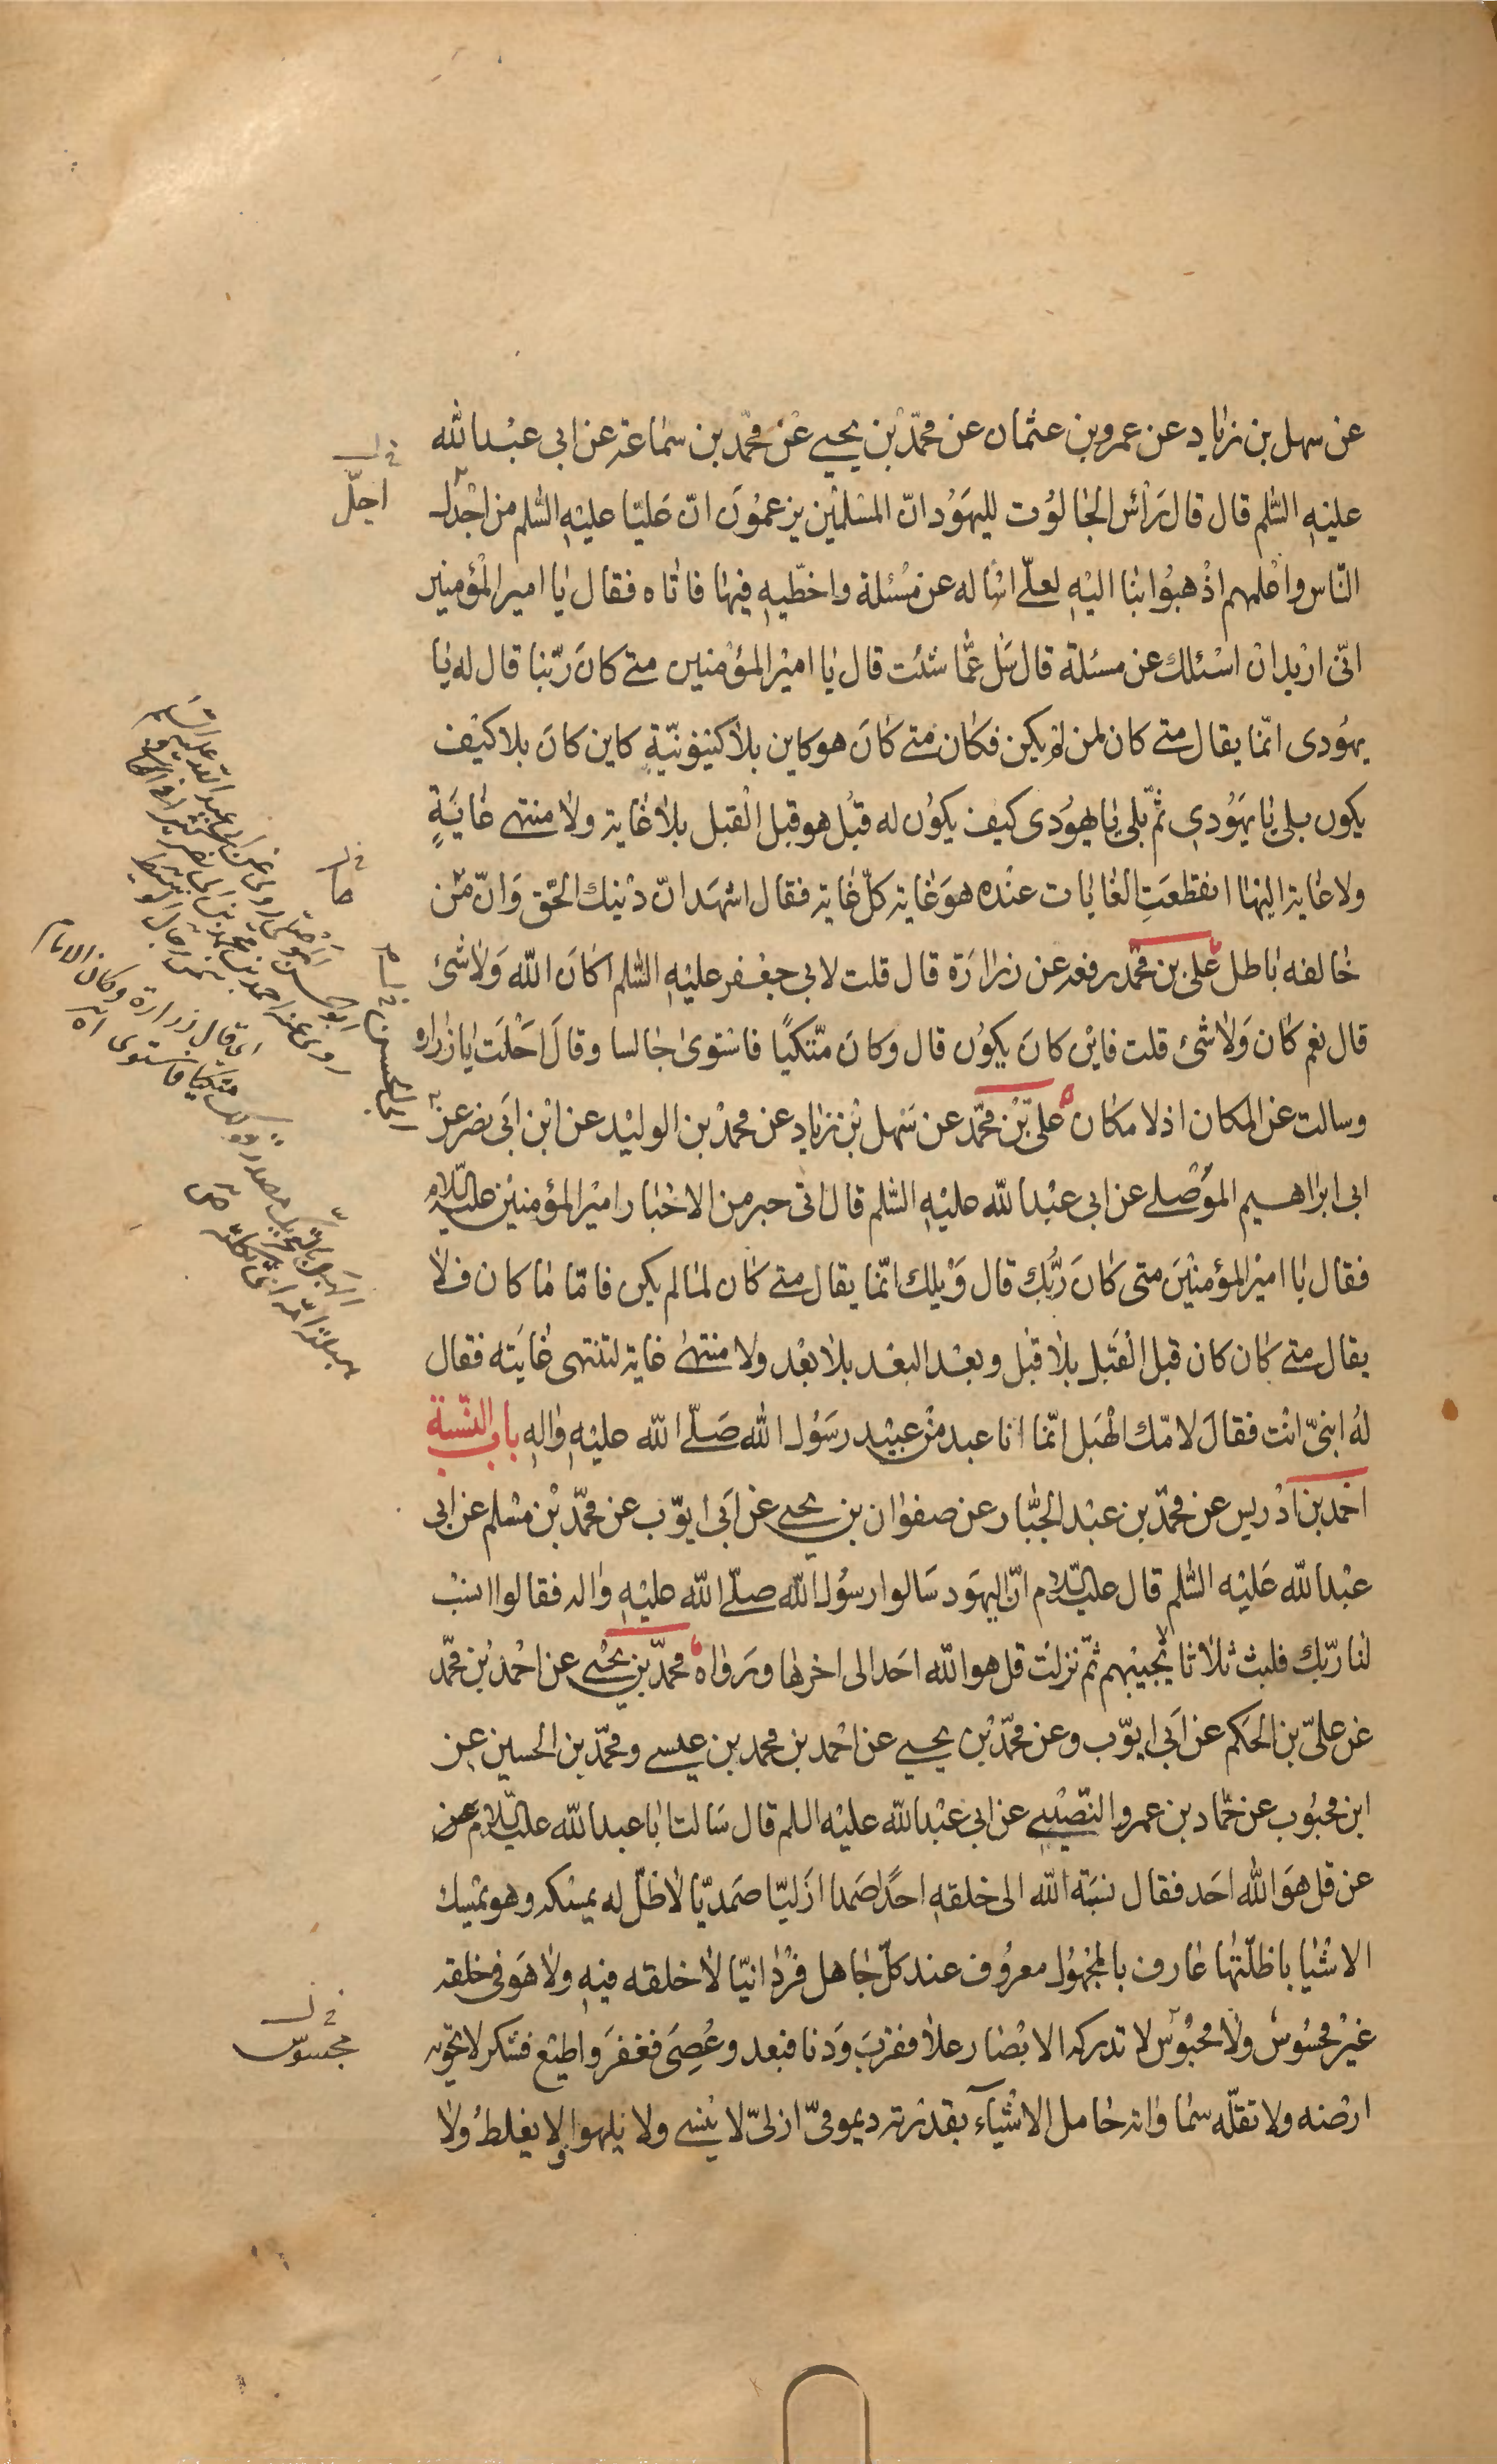 عن سهل بن زیاد عن عمرو بن عثمان عن محمّد بن یحیی عن محمّد بن سماعة عن ابی عبد الله
علیه السّلم قال قال رَأس الجالوُت للیهوُد انّ المسلمین یزعموُن انّ علیّا علیه السّلم من اجدل
النّاس واعلمهم اذهبوُا بنا الیه لعلّی اساله عن مسُئلة واخطّیه فیها فاتاه فقال یا امیر المؤمنین
انّی ارید ان اسئلك عن مسئلة قال سَل عمّا شئت قال یا امیر المؤمنین متی کانَ ربّنا قال له یا
یهوُدی انّما یقال متی کان لمن لم یکن فکان متی کانَ هو کاین بلا کینوُنیّةٍ کاین کانَ بلا کیف
یکون بلی یا یهَوُدی ثمّ بلی یا یهوُدی کیف یکوُن له قبُل هو قبل القبل بلا غایة ولا منتهی غایَةٍ
ولا غایة الیها انقطعَتِ الغایات عنده هوَ غایة کلّ غایة فقال اشهَد انّ دینك الحّق وَانّ من
خالفه باطل علی بن محمّد رفعه عن زرارَة قال قلت لابی جعفر علیه السّلم اکانَ الله وَلا شئ
قال نعم کان وَلا شئ قلت فاین کانَ یکوُن قال وکانَ متّکیًا فاستوی جالسا وقالَ احَلَت یا زراره
وسالت عن المکان اذ لا مکان علیّ بن محمّد عن سَهل بن زیاد عن محمد بن الولید عن ابن ابَی نصر عن
ابی ابراهیم الموُصلی عن ابی عبد الله علیه السّلم قال اتی حبر من الاحبار امیر المؤمنین علیه السّلام
فقال یا امیر المؤمنینَ متی کانَ ربُّك قال وَیلك انّما یقال متی کان لما لم یکن فامّا ما کان فلا
یقال متی کان کان قبل القَبل بلا قبل وبعد البعد بلا بعد ولا منتهی غایة لتنتهی غایَته فقال
لهُ انبیّ انت فقالَ لامّك الهَبل انّما انا عبد من عبید رسَوُل الله صَلّی الله علیه واله باب النّسبة
احمد بن ادریس عن محمّد بن عبد الجبّار عن صفوان بن یحیی عن ابَی ایوّب عن محمّد بن مسلم عن ابی
عبد الله عَلیه السّلم قال علیه السّلام انّ الیهوَد سَالوا رسوُل الله صلّی الله علیه واله فقالوا انسب
لنا ربّك فلبث ثلاثا لا یجیبهم ثمّ نزلت قل هو الله احَد الی اخرها ورَواه محمّد بن یحیی عن احمد بن محمّد
عن علیّ بن الحکم عن ابَی ایوّب وعن محمّد بن یحیی عن احمد بن محمد بن عیسی ومحمّد بن الحسین عن
ابن محبوُب عن حمّاد بن عمرو النّصیبی عن ابی عبد الله علیه السلم قال سَالت ابا عبد الله علیه السّلام عن
عن قل هوَ الله احَد فقال نسبَة الله الی خلقه احدًا صَمدا ازَلیّا صمَدیّا لا ظلّ له یمسکه وهو یمسك
الاشیا باظلّتها عارف بالمجهوُل معروُف عند کلّ جاهل فرُدانیّا لا خلقه فیه ولا هوَ فی خلقه
غیرُ محسوُس ولا محبوُس لا تدرکه الابصار علا فقربَ وَدنا فبعد وعُصِیَ فغفرَ واطیع فشکر لا تحویه
ارضه ولا تقلّه سمَا وانه حامل الاشیاء بقدرته دیمومیّ ازلیّ لا ینسی ولا یلهوا ولا یغلطُ ولا
اجلّ
مجسوس